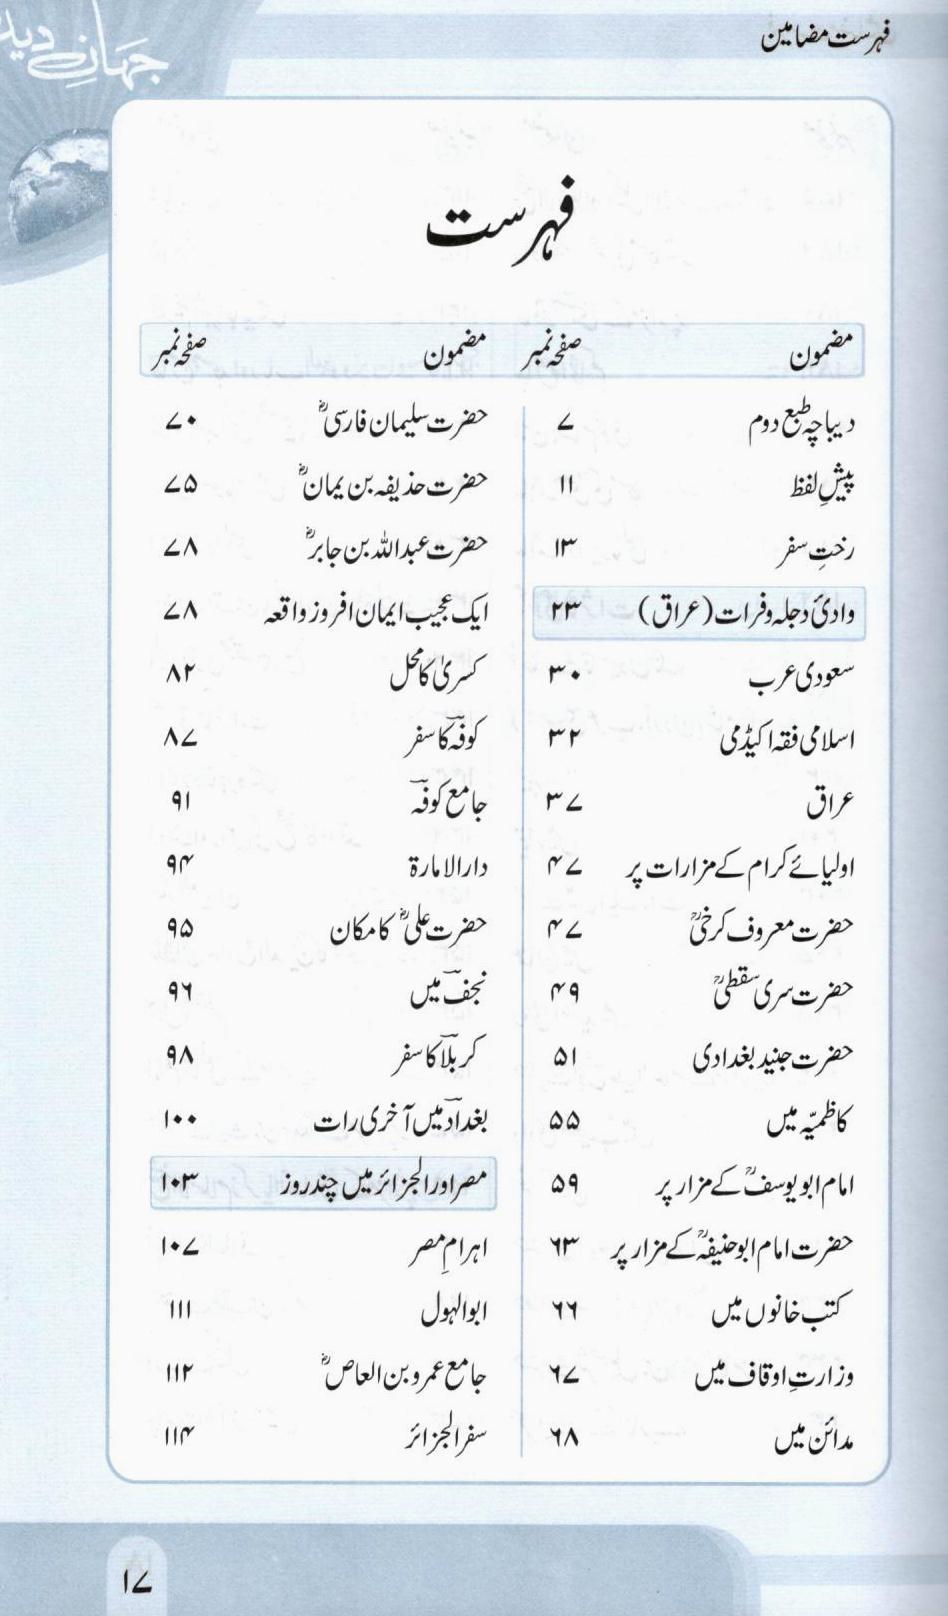 فہرست مضامین
جہانِ دید
فہرست
مضمون صفحہ نمبر
دیباچہ طبع دوم ۷
پیشِ لفظ ۱۱
رختِ سفر ۱۳
وادیٔ دجلہ وفرات (عراق) ۲۳
سعودی عرب ۳۰
اسلامی فقہ اکیڈمی ۳۲
عراق ۳۷
اولیائے کرام کے مزارات پر ۴۷
حضرت معروف کرخیؒ ۴۷
حضرت سری سقطیؒ ۴۹
حضرت جنید بغدادی ۵۱
کاظمیّہ میں ۵۵
امام ابو یوسفؒ کے مزار پر ۵۹
حضرت امام ابو حنیفہؒ کے مزار پر ۶۳
کتب خانوں میں ۶۶
وزارتِ اوقاف میں ۶۷
مدائن میں ۶۸
مضمون صفحہ نمبر
حضرت سلیمان فارسیؓ ۷۰
حضرت حذیفہ بن یمانؓ ۷۵
حضرت عبداللہ بن جابرؓ ۷۸
ایک عجیب ایمان افروز واقعہ ۷۸
کسریٰ کا محل ۸۲
کوفہ کا سفر ۸۷
جامع کوفہ ۹۱
دارالامارۃ ۹۴
حضرت علیؓ کا مکان ۹۵
نجف میں ۹۶
کربلا کا سفر ۹۸
بغداد میں آخری رات ۱۰۰
مصر اور الجزائر میں چند روز ۱۰۳
اہرامِ مصر ۱۰۷
ابوالہول ۱۱۱
جامع عمرو بن العاصؓ ۱۱۲
سفر الجزائر ۱۱۴
۱۷